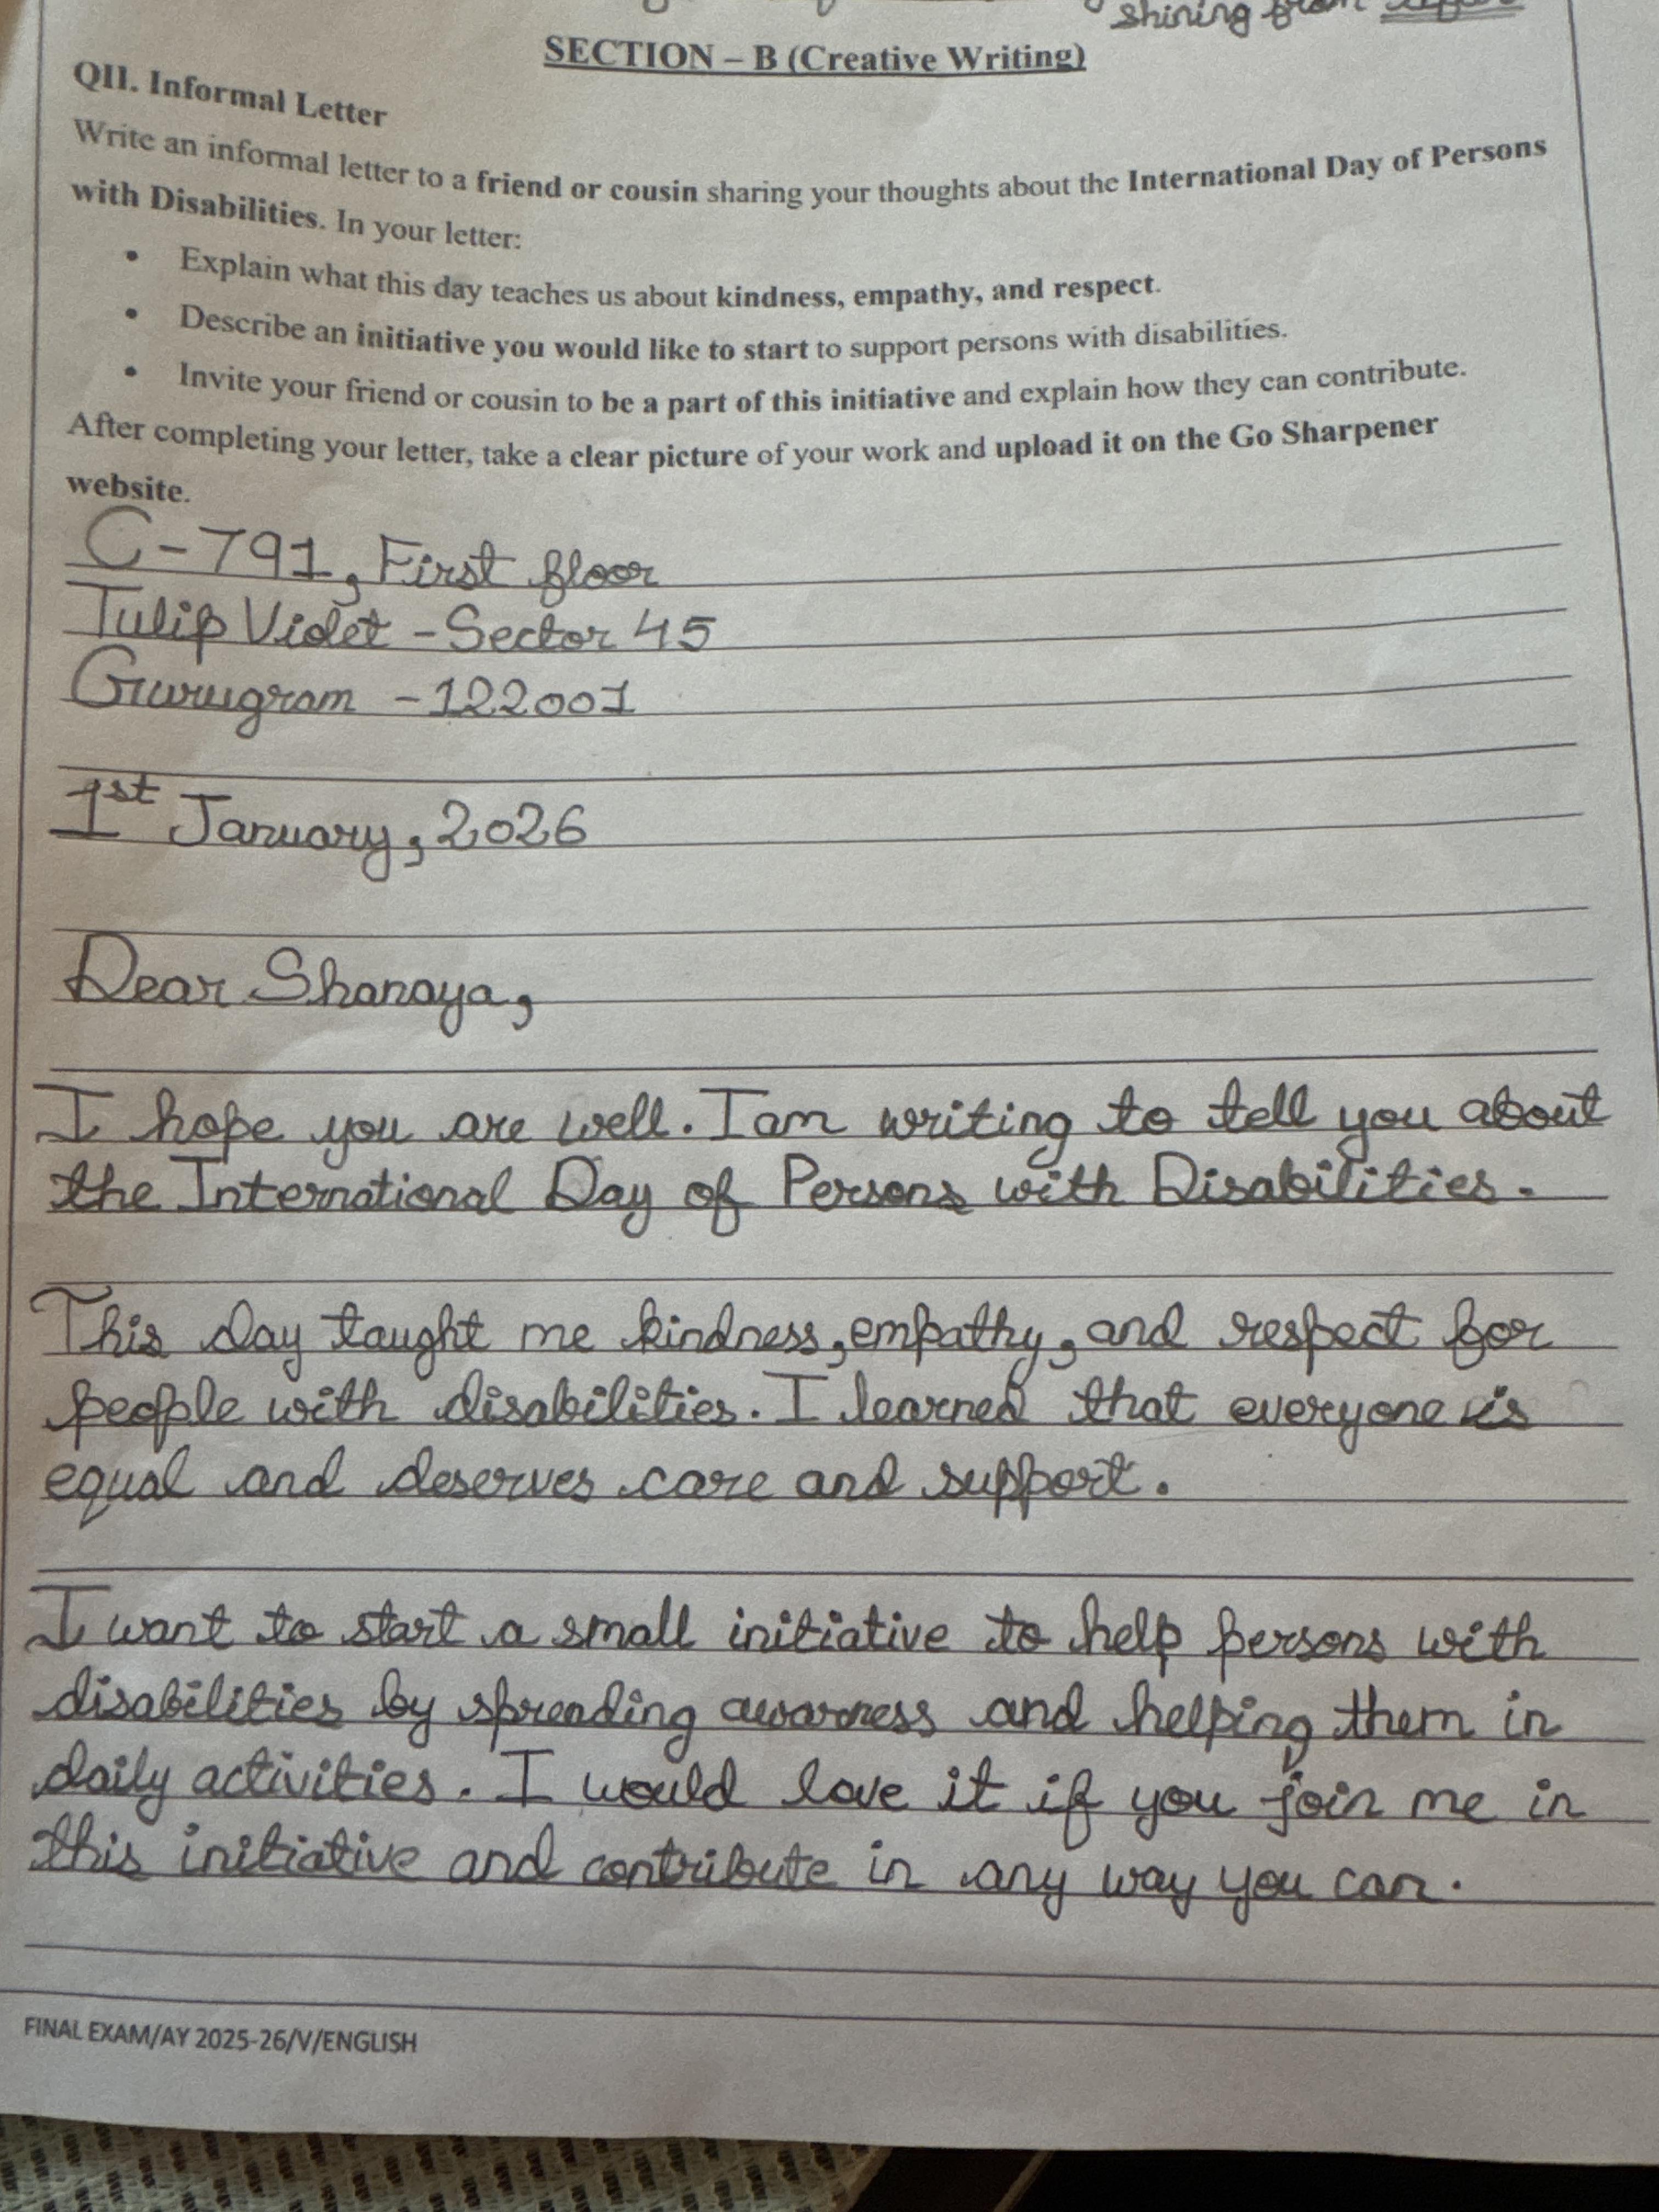 shining from
SECTION – B (Creative Writing)
QII. Informal Letter
Write an informal letter to a friend or cousin sharing your thoughts about the International Day of Persons
with Disabilities. In your letter:
• Explain what this day teaches us about kindness, empathy, and respect.
• Describe an initiative you would like to start to support persons with disabilities.
• Invite your friend or cousin to be a part of this initiative and explain how they can contribute.
After completing your letter, take a clear picture of your work and upload it on the Go Sharpener
website.
C-791, First floor
Tulip Violet - Sector 45
Gurugram - 122001
1st January, 2026
Dear Shanaya,
I hope you are well. I am writing to tell you about
the International Day of Persons with Disabilities.
This day taught me kindness, empathy, and respect for
people with disabilities. I learned that everyone is
equal and deserves care and support.
I want to start a small initiative to help persons with
disabilities by spreading awarness and helping them in
daily activities. I would love it if you join me in
this initiative and contribute in any way you can.
FINAL EXAM/AY 2025-26/V/ENGLISH